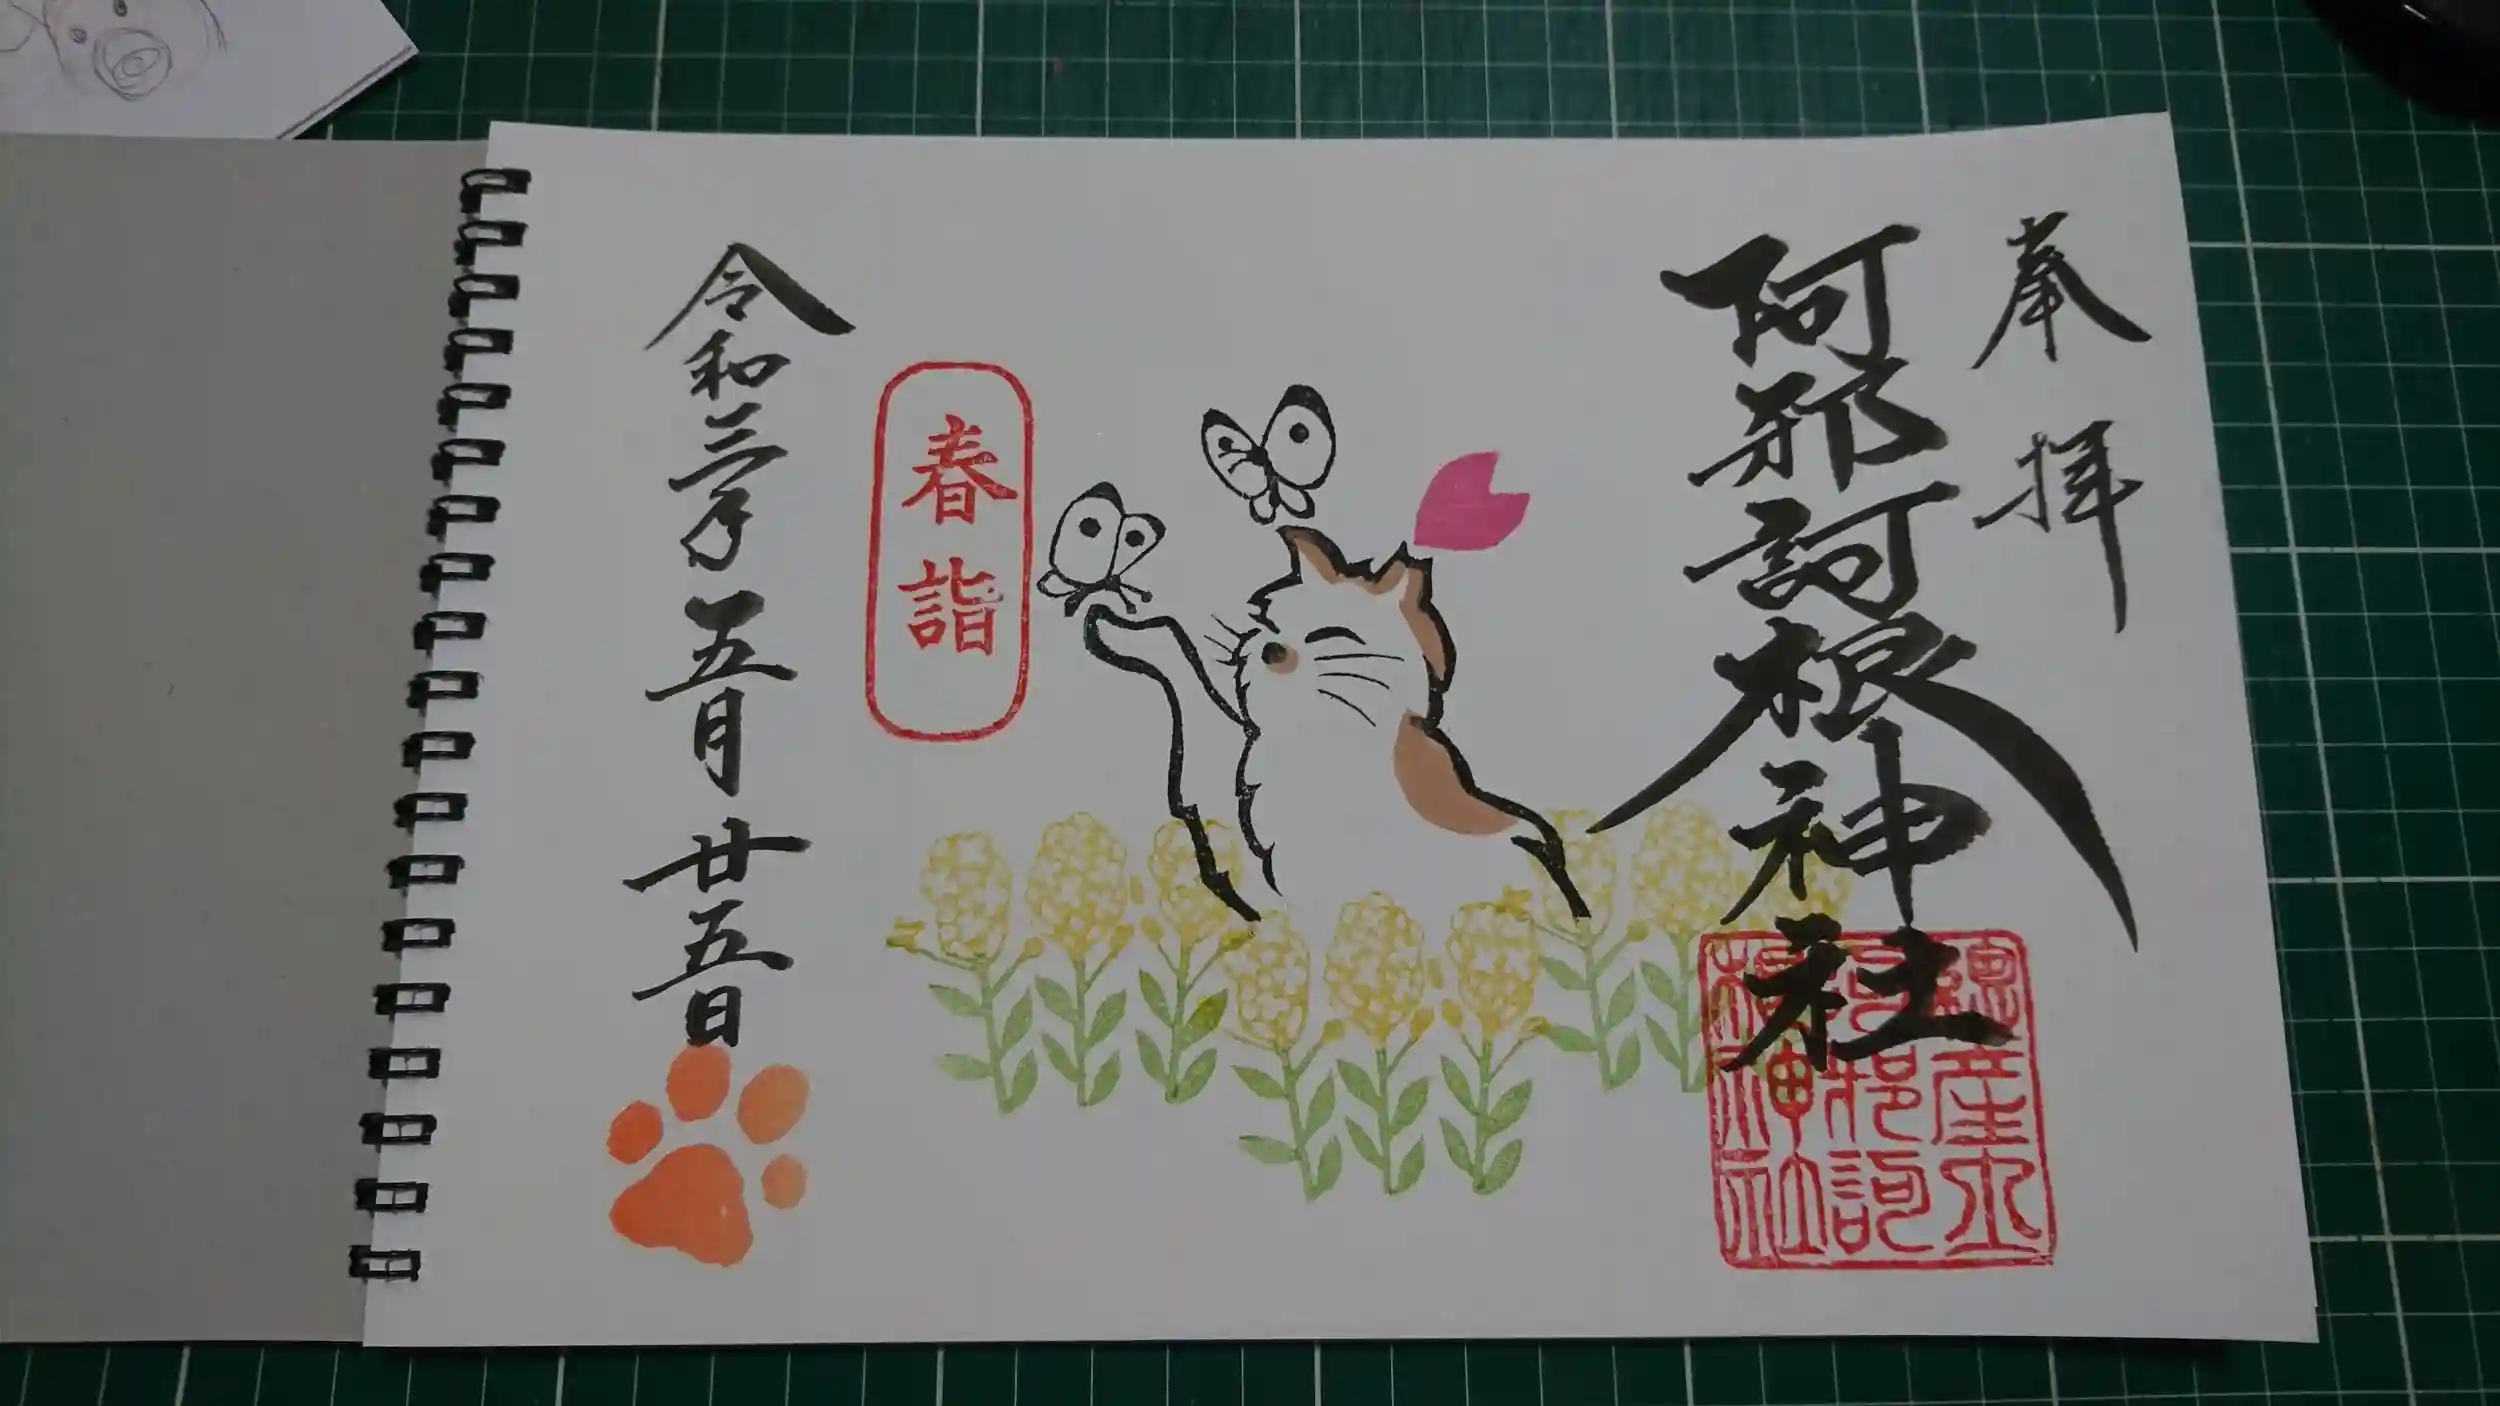 奉拝
阿邪訶根神社
阿邪訶
根神社
春詣
令和三年五月廿五日